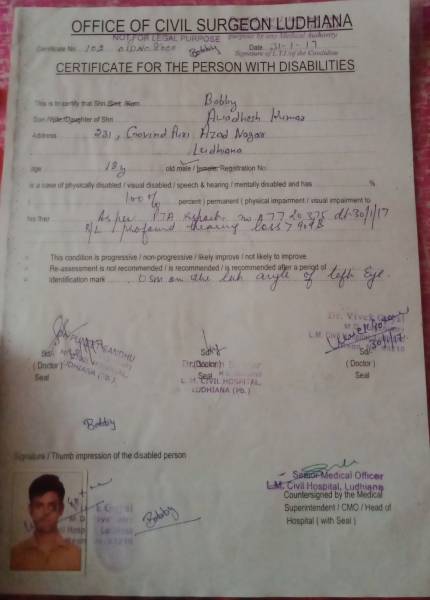 OFFICE OF CIVIL SURGEON LUDHIANA
NOT FOR LEGAL PURPOSE purpose by any Medical Authority
Certificate No. 102 Bobby Date 31-1-17
Signature of L.T.I of the Candidate
CERTIFICATE FOR THE PERSON WITH DISABILITIES
This is to certify that Shri Bobby
Son/Wife/Daughter of Shri Avadhesh Kumar
Address 231, Govind Puri, Azad Nagar
Ludhiana
age 18y old male / female, Registration No.
is a case of physically disabled / visual disabled / speech & hearing / mentally disabled and has %
100% percent ( permanent ( physical impairment / visual impairment to
his/her As per PTA 30/1/17
B/L profound hearing loss > 90dB
This condition is progressive / non-progressive / likely improve / not likely to improve.
Re-assessment is not recommended / is recommended / is recommended after a period of
identification mark on the angle of left Eye.
Dr. Vivek
30/1/17
Sd/- Sd/- Sd/-
( Doctor ) (Doctor) ( Doctor )
Seal Seal Seal
L. M. CIVIL HOSPITAL,
LUDHIANA (Pb.)
Bobby
Signature / Thumb impression of the disabled person
Bobby
Senior Medical Officer
L.M. Civil Hospital, Ludhiana
Countersigned by the Medical
Superintendent / CMO / Head of
Hospital ( with Seal )